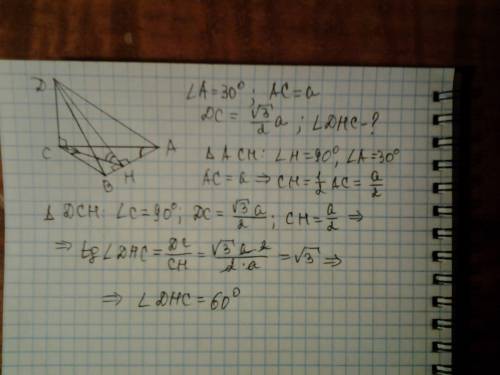 D
C
A
B
H
∠A=30°; AC=a
DC=√3/2 a; ∠DHC-?
Δ ACH: ∠H=90°, ∠A=30°
AC=a ⇒ CH=1/2 AC=a/2
Δ DCH: ∠C=90°; DC=√3a/2; CH=a/2 ⇒
⇒ tg∠DHC=DC/CH=√3 a 2/2·a=√3 ⇒
⇒ ∠DHC=60°